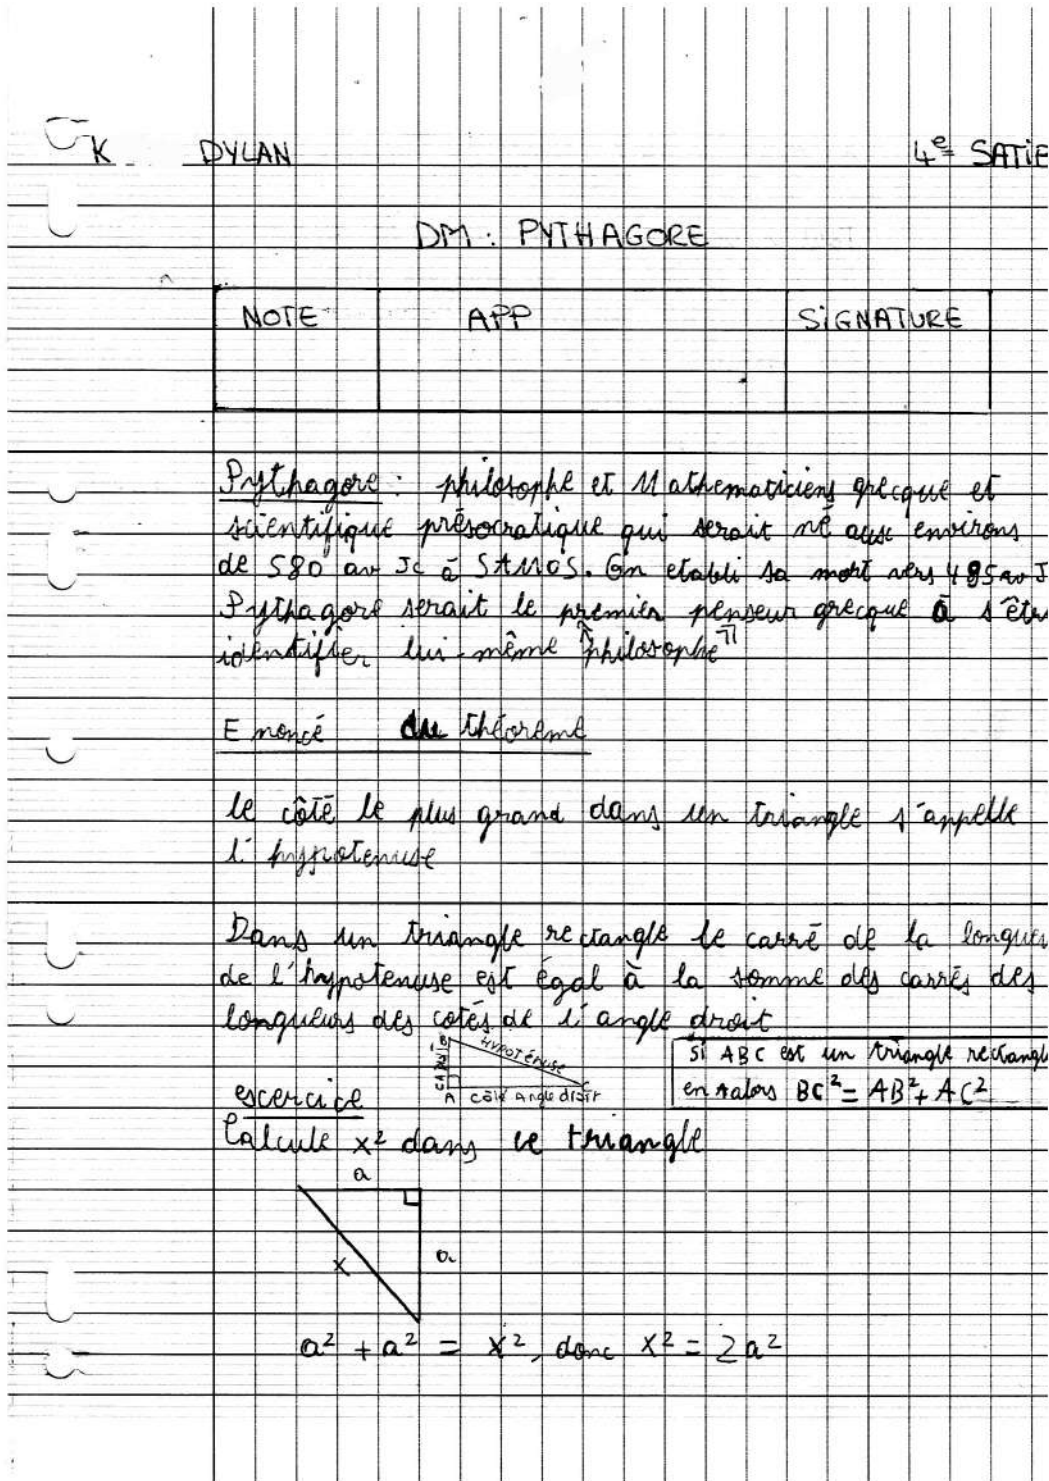 K DYLAN 4e SATIE
DM : PYTHAGORE
NOTE APP SiGNATURE
Pythagore : philosophe et Mathematiciens grecque et
scientifique présocratique qui serait né aux environs
de 580 av Jc à SAMOS. On etabli sa mort vers 495 av J
Pythagore serait le premier penseur grecque à s'être
identifier lui-même "philosophe"
Enoncé du théorème
le côté le plus grand dans un triangle s'appelle
l'hypotenuse
Dans un triangle rectangle le carré de la longueu
de l'hypotenuse est égal à la somme des carrés des
longueurs des cotés de l'angle droit
B HYPOTÉNUSE C
A côté angle droit
Si ABC est un triangle rectangle
en A alors BC² = AB² + AC²
escercice
Calcule x² dans ce triangle
a
x a
a² + a² = x², donc x² = 2a²